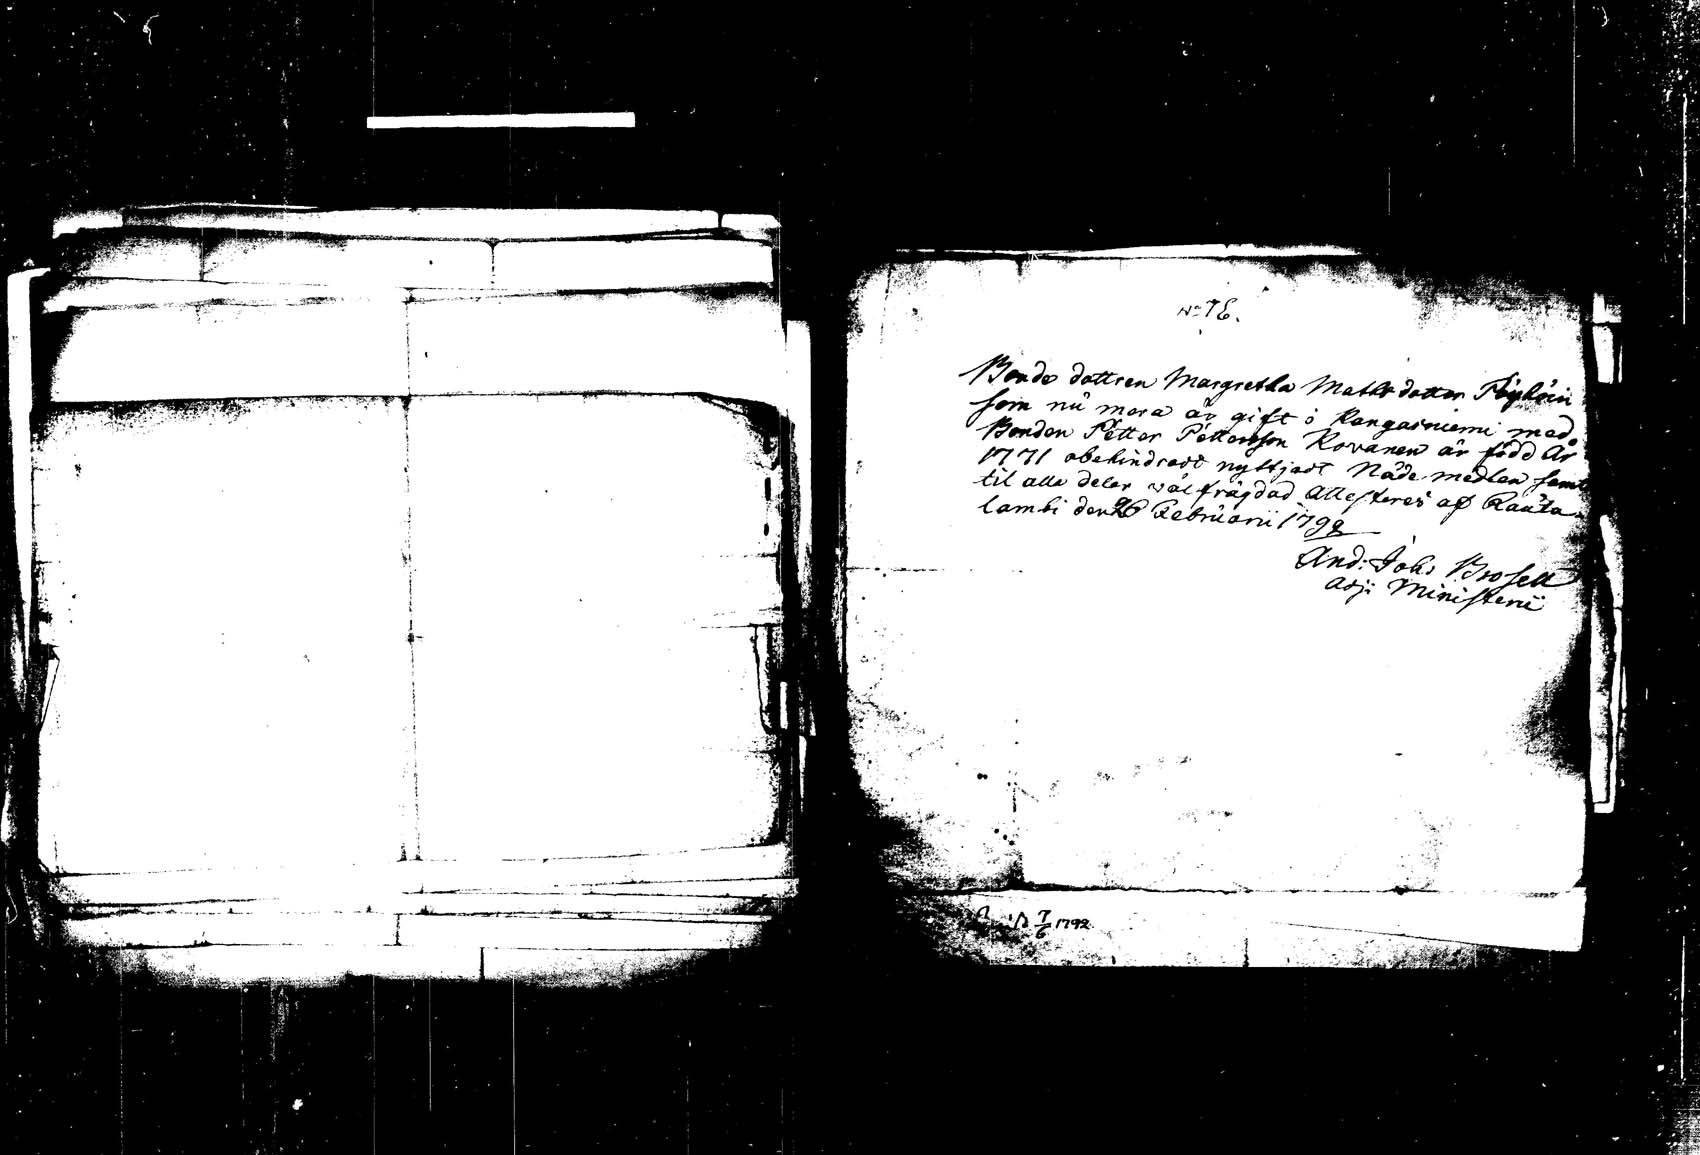 No 7 E.
Bonde dottren Margretha Matts dotter Pöyhöin
som nu mera är gift i Kangasniemi med
Bonden Petter Pettersson Kovanen är född År
1771 obehindradt nyttjadt Nåde medlen samt
til alla delar välfrägdad Attesteres af Rauta-
lambi den 26 Februarii 1792
And: Joh: Brofelt
adj: Ministerii
7/6 1792